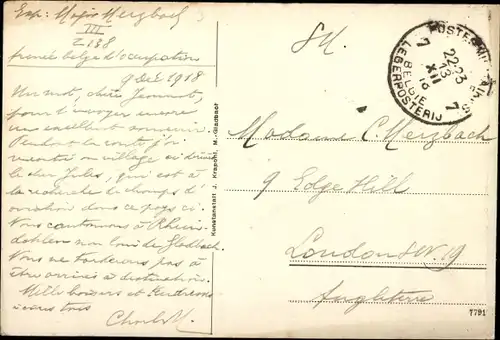 Exp: Major Merzbach
III
Z 238
armée belge d'occupation
9 Dec 1918
Un mot, chère Jeanne,
pour t'envoyer encore
un excellent souvenir.
Pendant la route j'ai
un village ci
le cher Jules, qui est à
la recherche de champs d'
aviation dans ce pays ci.
Nous cantonnons à Rhein-
dahlen non loin de Gladbach.
Nous ne tarderons pas à
être arrivés à destination.
Mille baisers et tendresses
à vous tous
Charles M.
Kunstanstalt J. Krapohl, M.-Gladbach
S.M.
POSTES MILITAIRES
BELGIE
LEGERPOSTERIJ
22-23
13 XII
18
7 7
Madame C. Merzbach
9 Edge Hill
London S.W. 19
Angleterre
7791